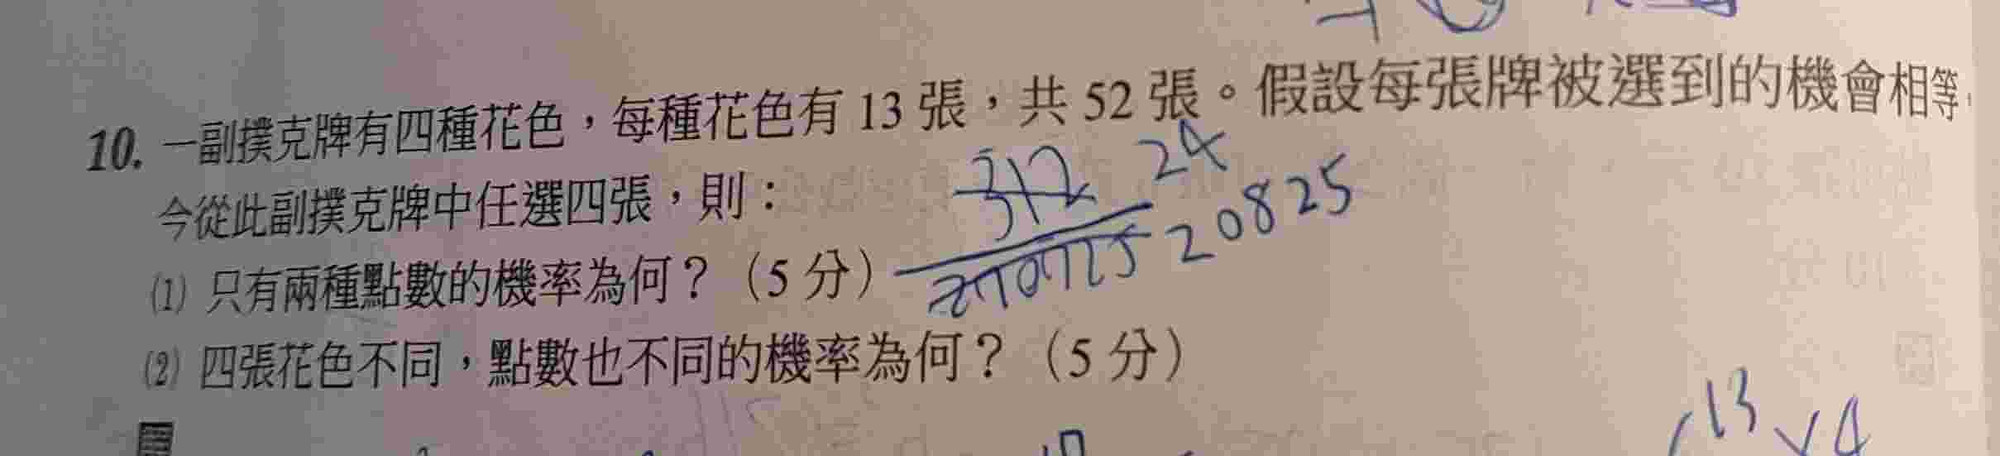 10. 一副撲克牌有四種花色，每種花色有 13 張，共 52 張。假設每張牌被選到的機會相等，
今從此副撲克牌中任選四張，則：
312 24
20825
(1) 只有兩種點數的機率為何？（5 分）
270725
(2) 四張花色不同，點數也不同的機率為何？（5 分）
13 × 4